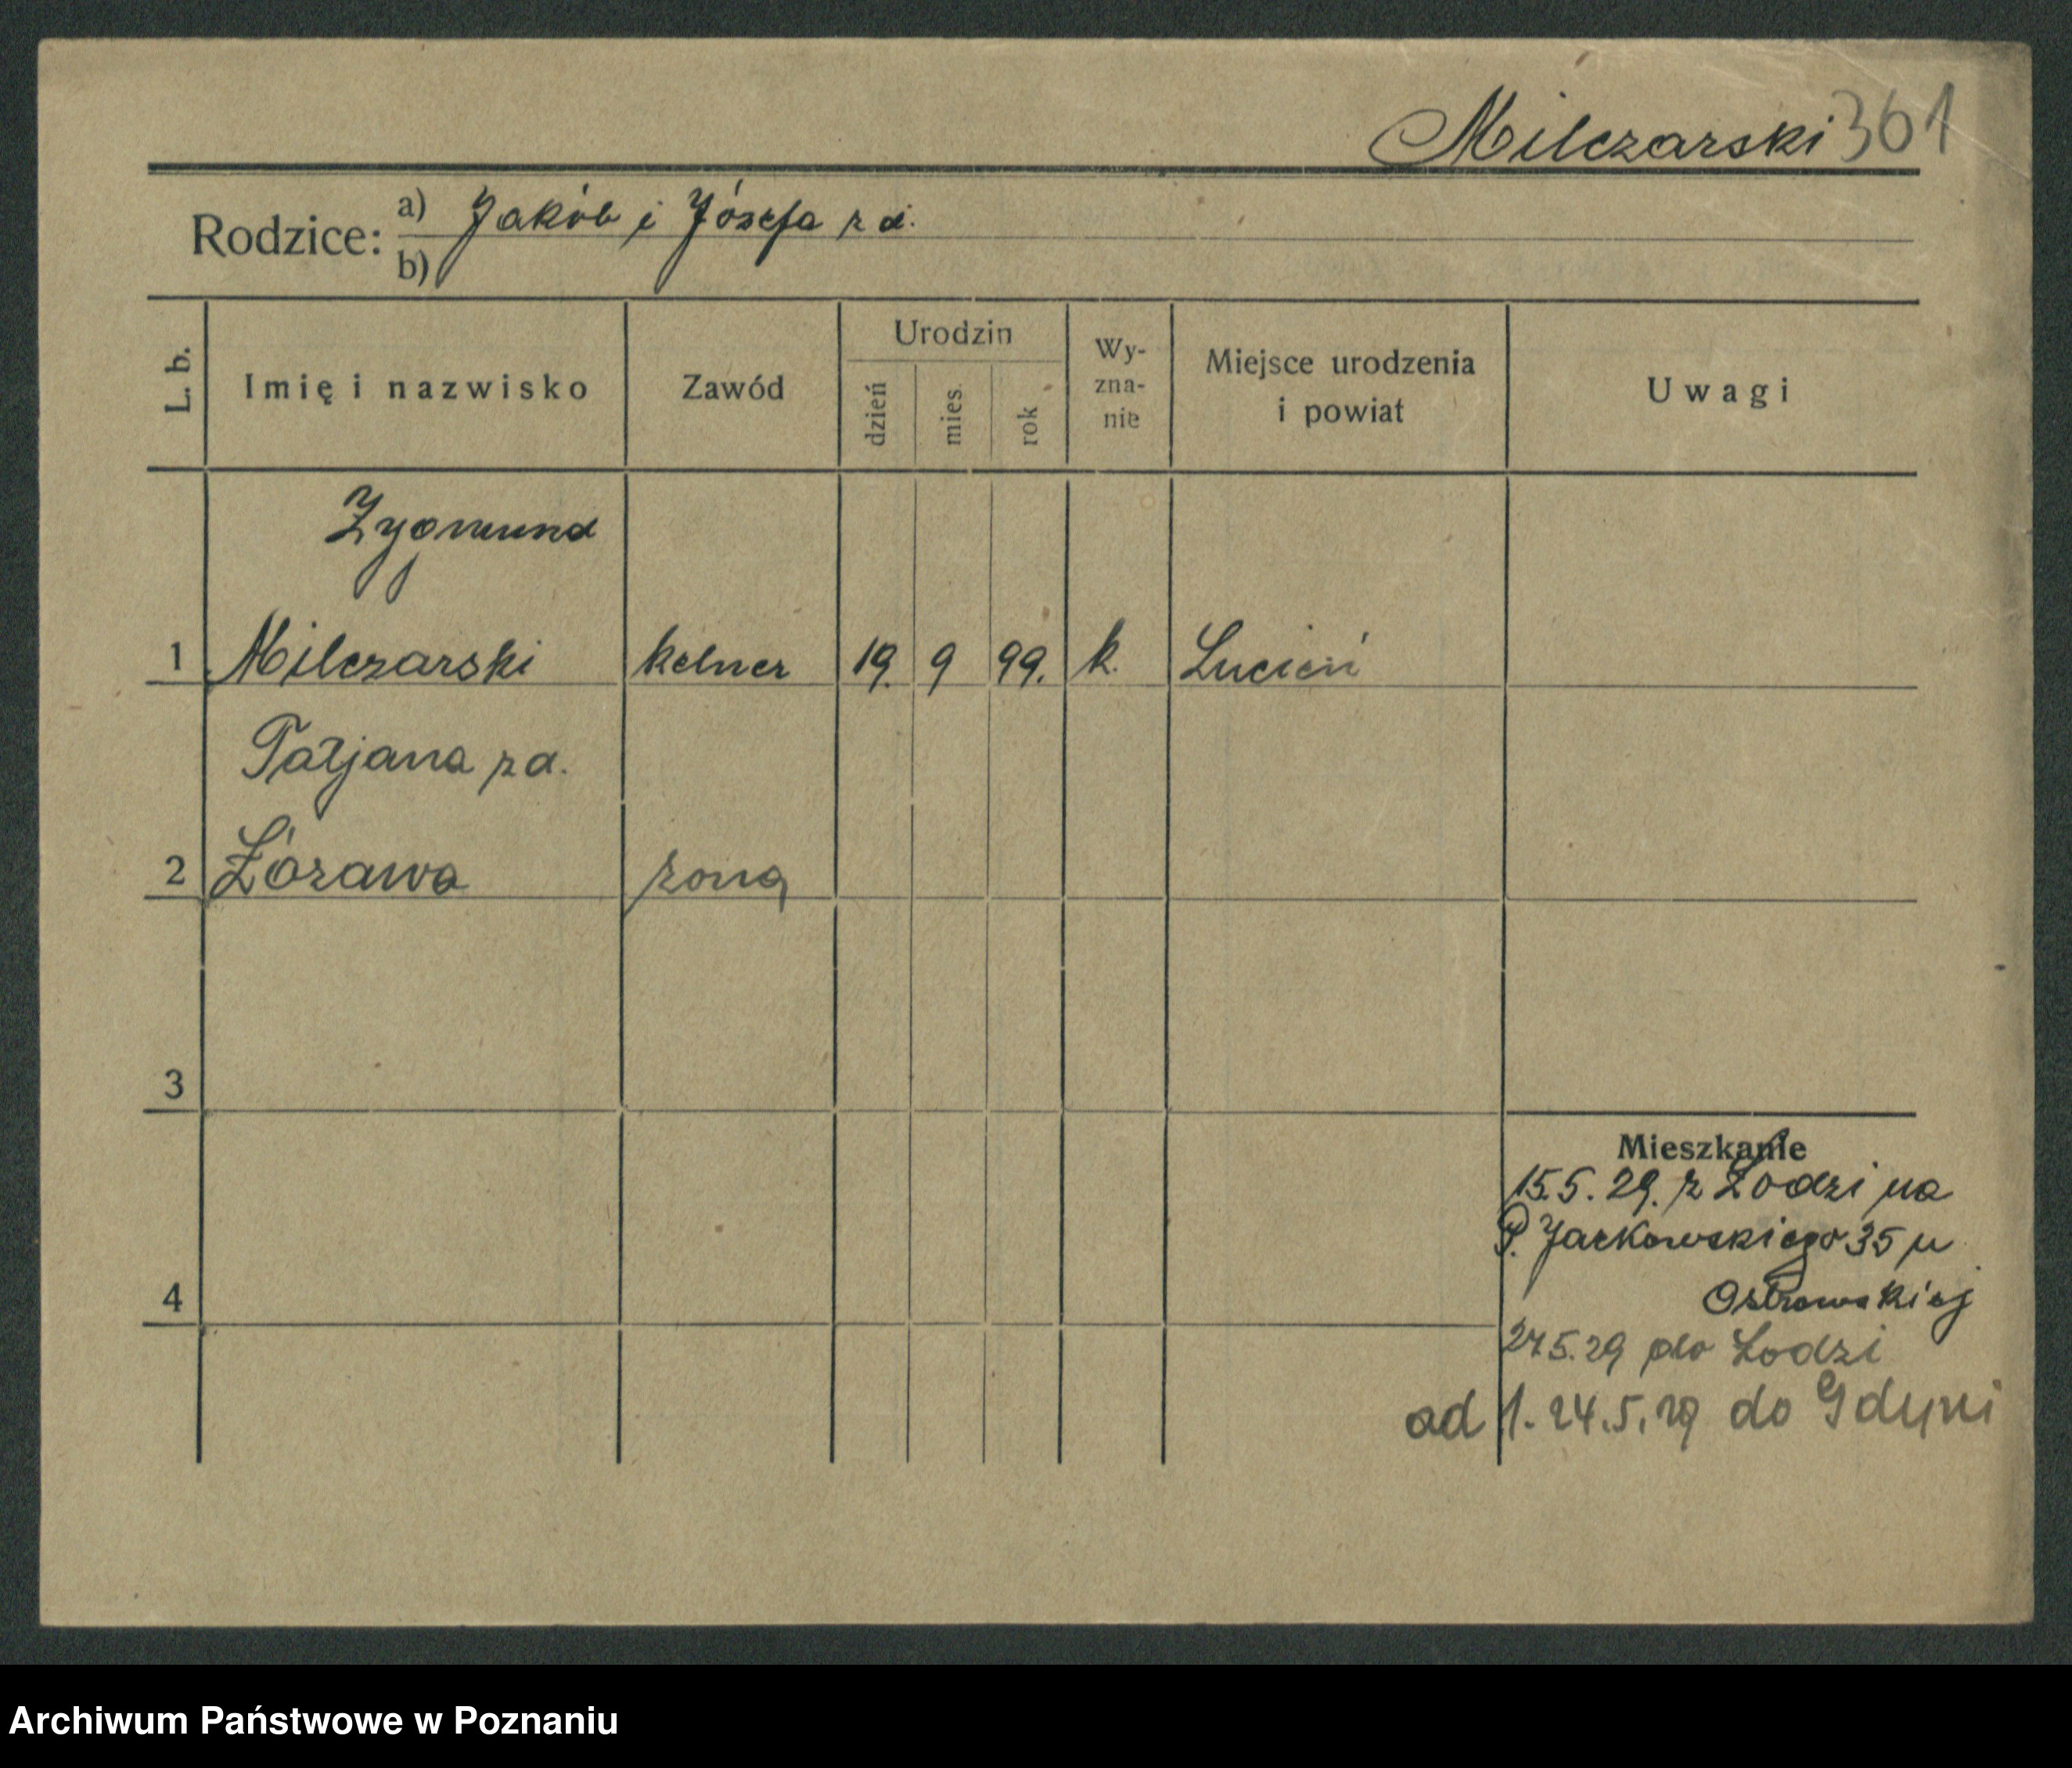 Milczarski 361
Rodzice: a) Jakób i Józefa z d.
b)
L. b. Imię i nazwisko Zawód Urodzin dzień mies. rok Wy-zna-nie Miejsce urodzenia i powiat Uwagi
Zygmund
1 Milczarski kelner 19. 9 99. k. Lucień
Tatjana z d.
2 Żórawa żona
3
Mieszkanie
15.5.29. z Łodzi na
P. Jackowskiego 35 u
4 Ostrowskiej
24.5.29 do Łodzi
ad 1. 24.5.29 do Gdyni
Archiwum Państwowe w Poznaniu